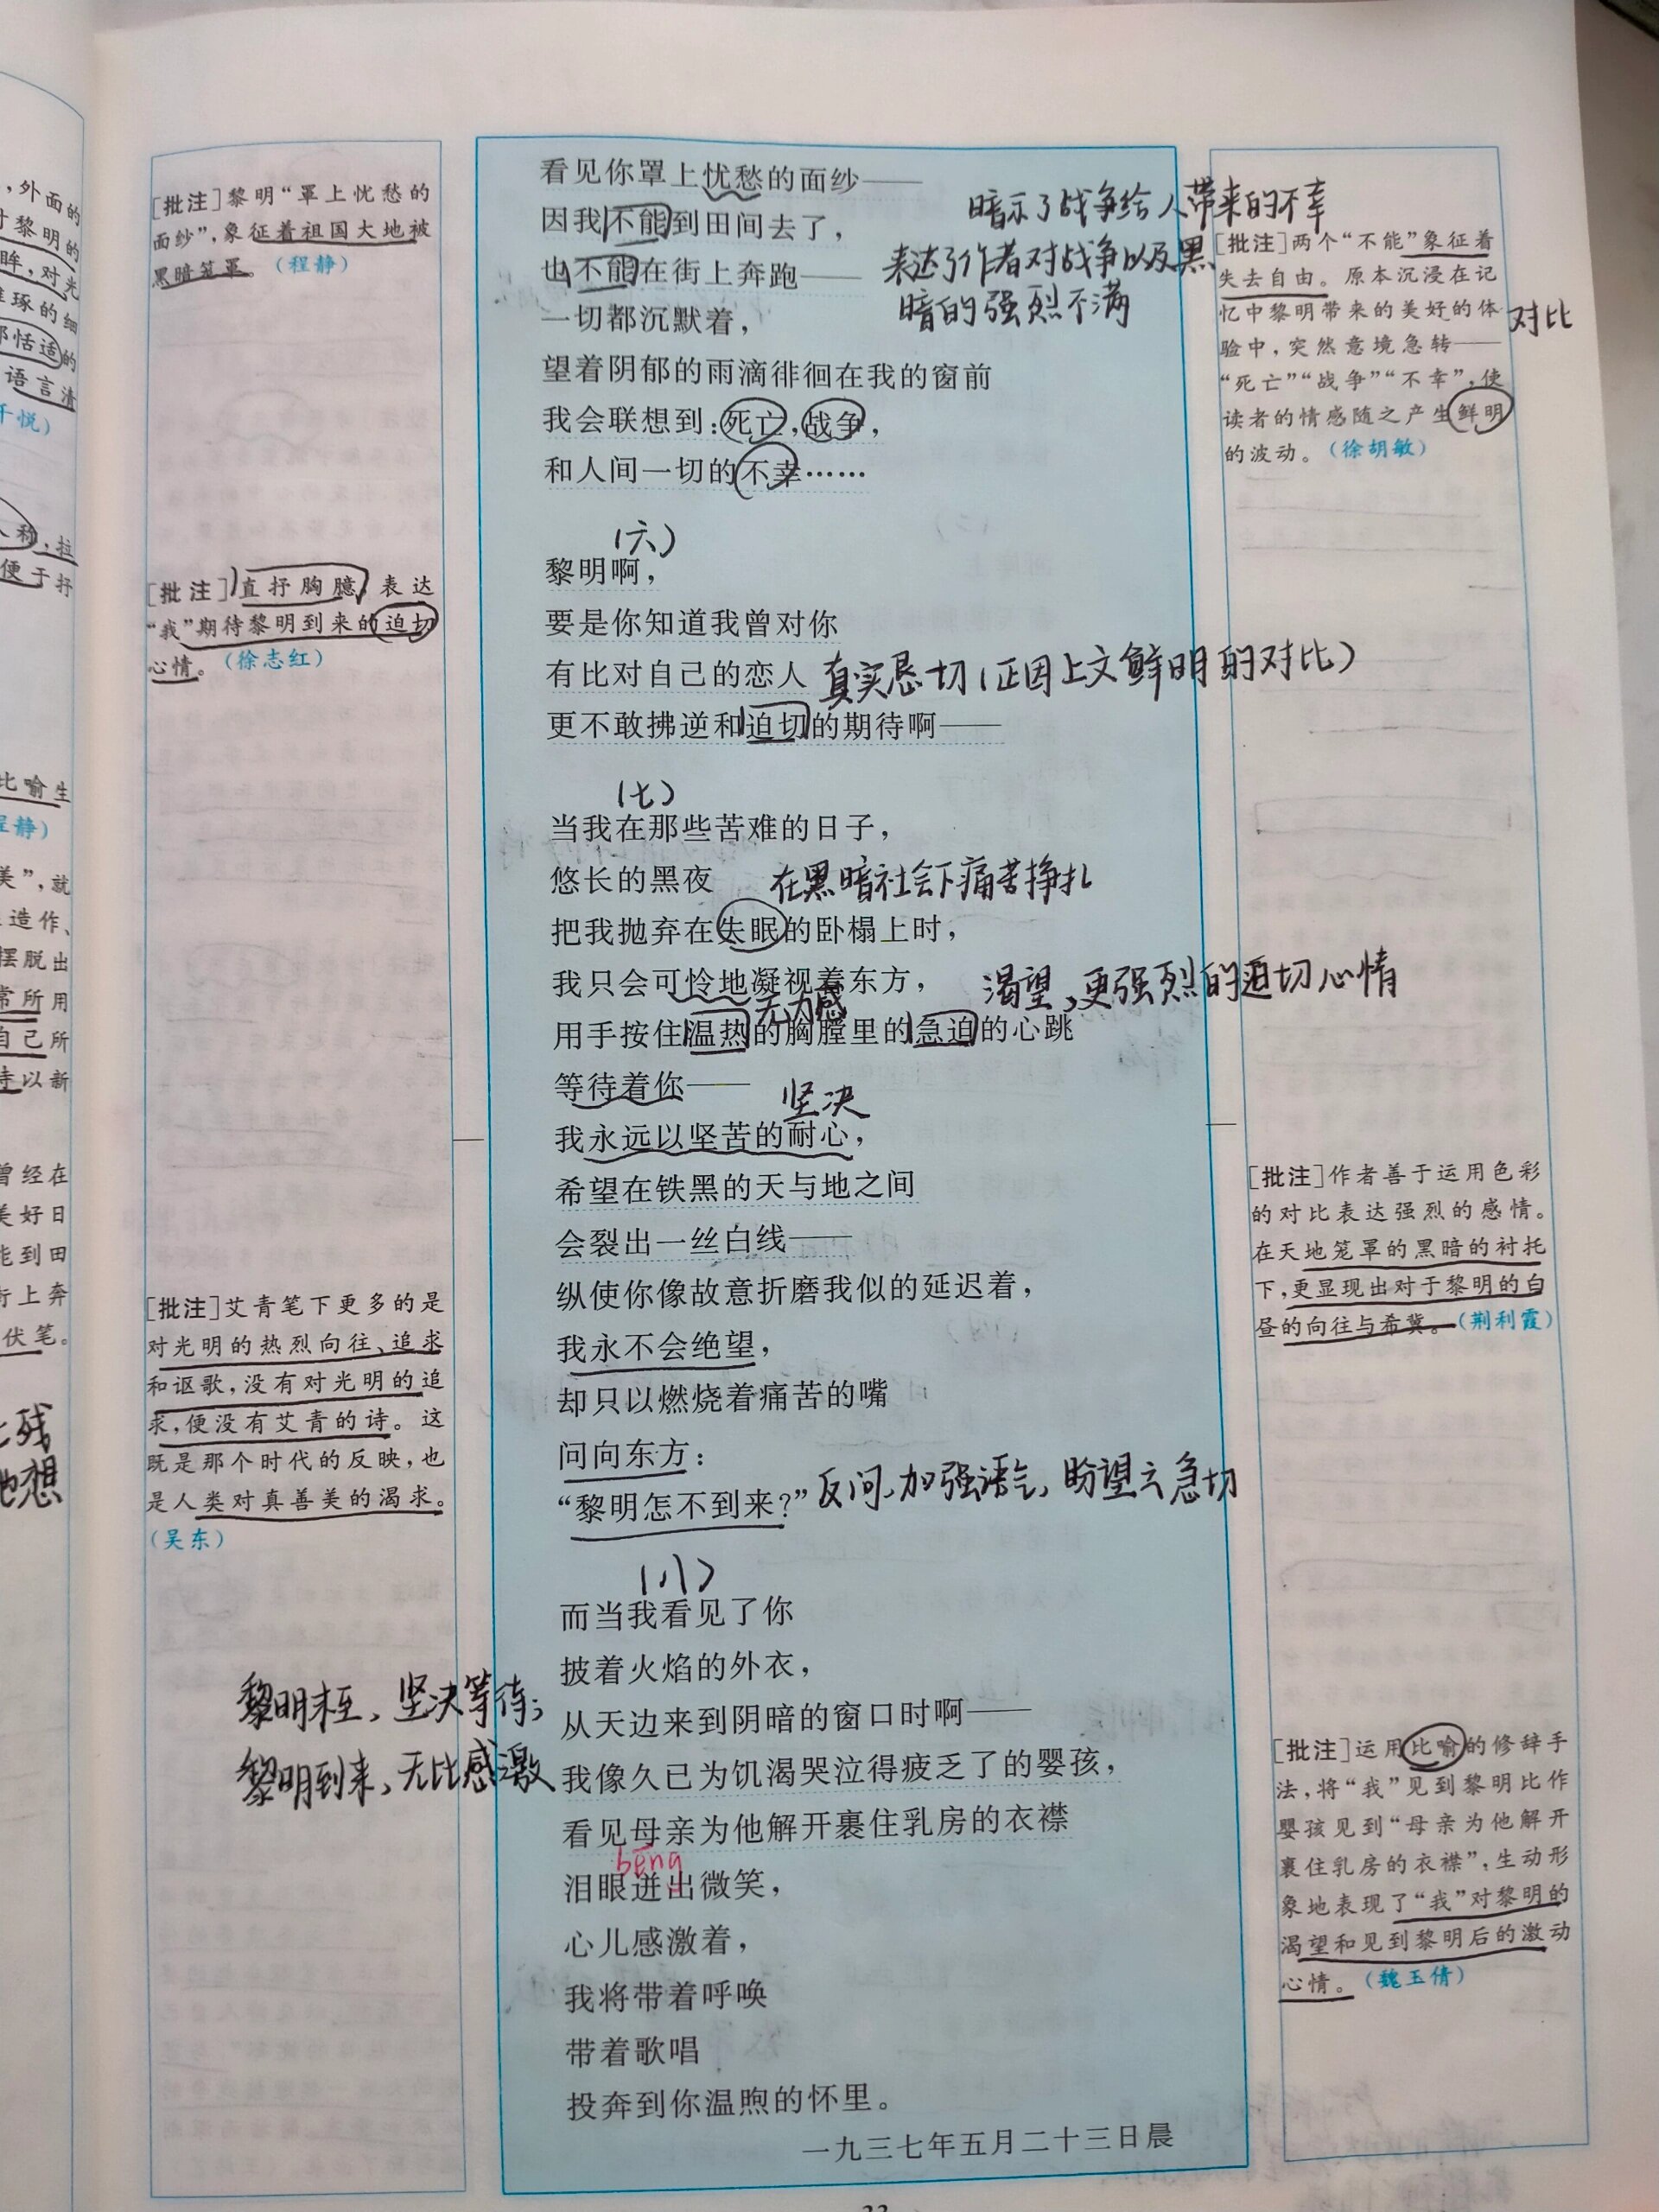 ，外面的
对黎明的
眸，对光
琢的细
那恬适的
语言清
千悦）
人称，拉
便于抒
比喻生
程静）
美”，就
造作、
摆脱出
常所用
自己所
诗以新
曾经在
美好日
能到田
街上奔
伏笔。
残
他想
[批注]黎明“罩上忧愁的
面纱”，象征着祖国大地被
黑暗笼罩。（程静）
[批注]直抒胸臆，表达
“我”期待黎明到来的迫切
心情。（徐志红）
[批注]艾青笔下更多的是
对光明的热烈向往、追求
和讴歌，没有对光明的追
求，便没有艾青的诗。这
既是那个时代的反映，也
是人类对真善美的渴求。
（吴东）
黎明未至、坚决等待；
黎明到来，无比感激
看见你罩上忧愁的面纱——
因我不能到田间去了，
也不能在街上奔跑——
一切都沉默着，
望着阴郁的雨滴徘徊在我的窗前
我会联想到：死亡，战争，
和人间一切的不幸……
暗示了战争给人带来的不幸
表达了作者对战争以及黑
暗的强烈不满
（六）
黎明啊，
要是你知道我曾对你
有比对自己的恋人
真实恳切（正因上文鲜明的对比）
更不敢拂逆和迫切的期待啊——
（七）
当我在那些苦难的日子，
悠长的黑夜
在黑暗社会下痛苦挣扎
把我抛弃在失眠的卧榻上时，
我只会可怜地凝视着东方，
无力感
渴望，更强烈的迫切心情
用手按住温热的胸膛里的急迫的心跳
等待着你——
坚决
我永远以坚苦的耐心，
希望在铁黑的天与地之间
会裂出一丝白线——
纵使你像故意折磨我似的延迟着，
我永不会绝望，
却只以燃烧着痛苦的嘴
问向东方：
“黎明怎不到来？”
反问，加强语气，盼望之急切
（八）
而当我看见了你
披着火焰的外衣，
从天边来到阴暗的窗口时啊——
我像久已为饥渴哭泣得疲乏了的婴孩，
看见母亲为他解开裹住乳房的衣襟
bèng
泪眼迸出微笑，
心儿感激着，
我将带着呼唤
带着歌唱
投奔到你温煦的怀里。
一九三七年五月二十三日晨
[批注]两个“不能”象征着
失去自由。原本沉浸在记
忆中黎明带来的美好的体
验中，突然意境急转——
“死亡”“战争”“不幸”，使
读者的情感随之产生鲜明
的波动。（徐胡敏）
对比
[批注]作者善于运用色彩
的对比表达强烈的感情。
在天地笼罩的黑暗的衬托
下，更显现出对于黎明的白
昼的向往与希冀。（荆利霞）
[批注]运用比喻的修辞手
法，将“我”见到黎明比作
婴孩见到“母亲为他解开
裹住乳房的衣襟”，生动形
象地表现了“我”对黎明的
渴望和见到黎明后的激动
心情。（魏玉倩）